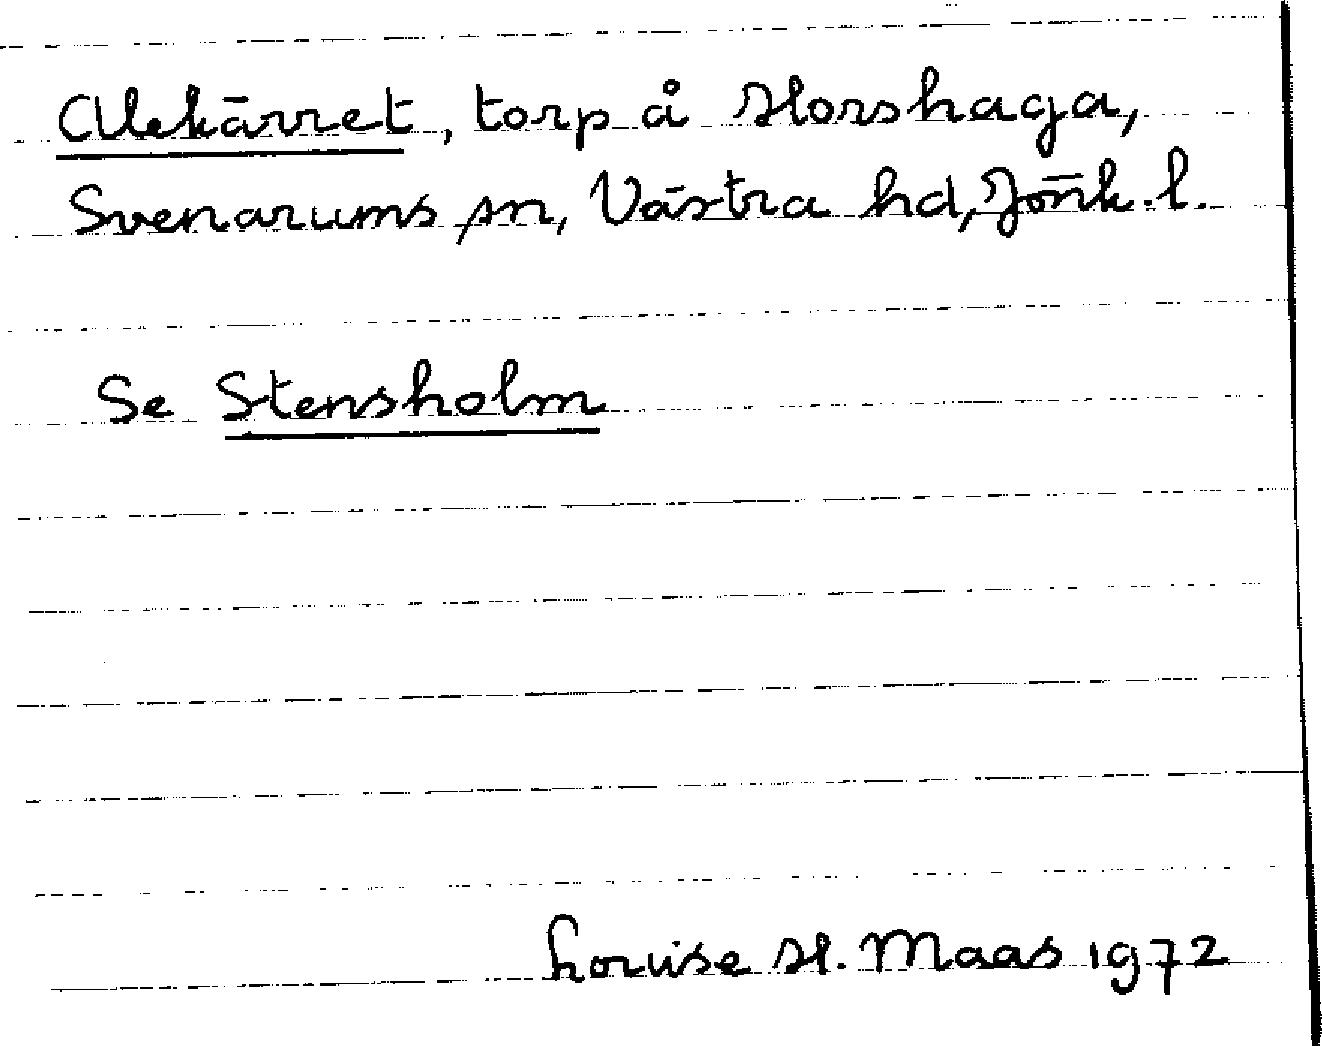 Alekärret, torp å Horshaga,
Svenarums sn, Västra hd, Jönk. l.
Se Stensholm
Louise H. Maas 1972